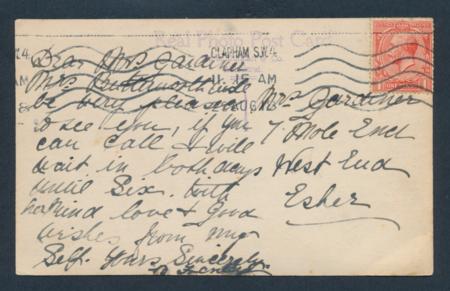 Real Photo Post Card
CLAPHAM S.W.4
11.15 AM
AUG
Dear Mrs Gardiner
Mrs Butterworth will
be very pleased
to see you, if you
can call & will
wait in both days
until Six. with
kind love & Good
wishes from my
Self. Yours Sincerely
Mrs Gardiner
7 Mole End
West End
Esher